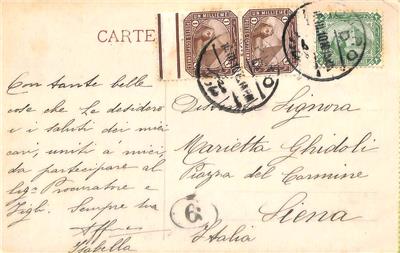 CARTE
UN MILLIEME
Con tante belle
cose che Le desidero
e i saluti dei miei
cari, uniti a' miei,
da partecipare al
Sig. Procuratore e
Figli. Sempre sua
Aff
Isabella
Distinta Signora
Marietta Ghidoli
Piazza del Carmine
Siena
Italia